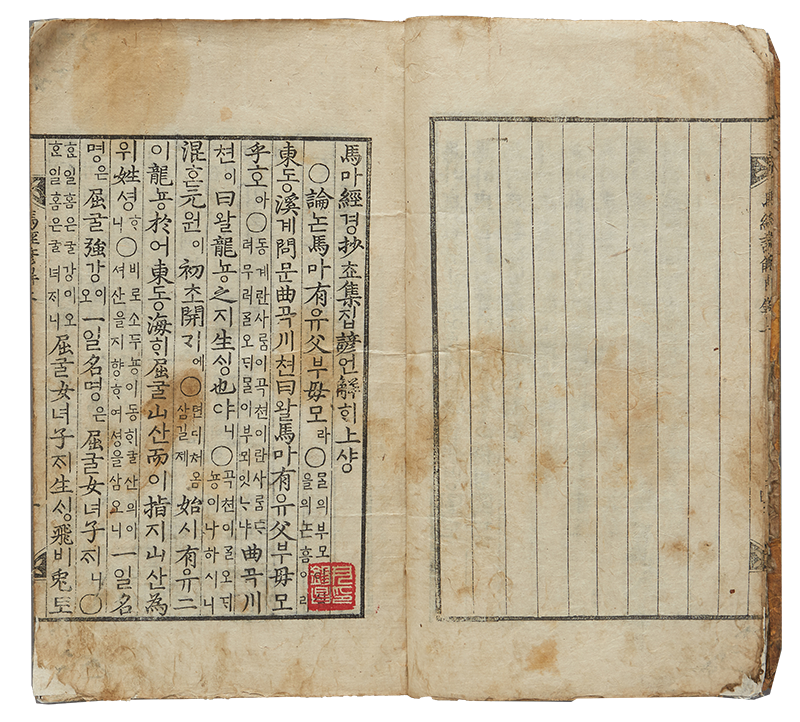 馬마經경抄쵸集집諺언解ᄒᆡ上샹
○論논馬마有유父부母모라○ᄆᆞᆯ의부모을의논홈이라
東동溪계問문曲곡川쳔曰왈馬마有유父부母모
乎호아○동계란사ᄅᆞᆷ이곡쳔이란사ᄅᆞᆷᄃᆞ려무러ᄀᆞᆯ오ᄃᆡᄆᆞᆯ이부뫼잇ᄂᆞ냐曲곡川
쳔이曰왈龍뇽之지生ᄉᆡᆼ也야ㅣ니○곡쳔이ᄀᆞᆯ오ᄃᆡ뇽이나하시니
混혼元원이初초開ᄀᆡ에○텬디처음삼길제始시有유二
이龍뇽於어東동海ᄒᆡ屈굴山산而이指지山산為
위姓셩ᄒᆞ니○비로소두뇽이동ᄒᆡ굴산의이셔산을지향ᄒᆞ여셩을삼으니一일名
명은屈굴強강이오一일名명은屈굴女녀子ᄌᆡ니○
ᄒᆞᆫ일홈은굴강이오ᄒᆞᆫ일홈은굴녀ᄌᆡ니屈굴女녀子ᄌᆡ生ᄉᆡᆼ飛비兎토